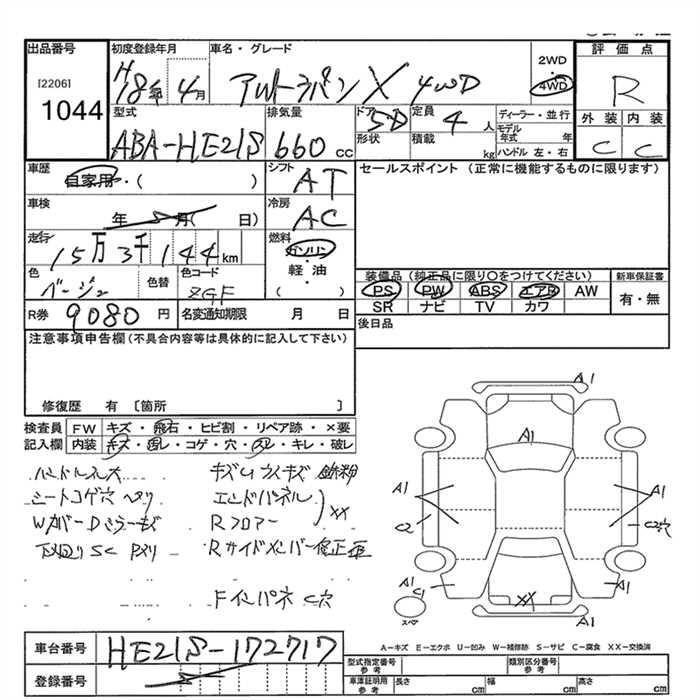 出品番号 初度登録年月 車名・グレード 2WD 評価点
[2206] H18年 4月 アルトラパン X 4WD 4WD R
1044 型式 排気量 ドア 5D 定員 4人 ディーラー・並行 外装 内装
ABA-HE21S 660cc 形状 積載 kg モデル年式 年 C C
ハンドル 左・右
車歴 シフト セールスポイント (正常に機能するものに限ります)
自家用・( ) AT
車検 冷房
年 月( 日) AC
走行 燃料
15万3千144km ガソリン
色 色替 色コード 軽・油 装備品 (純正品に限り○をつけてください) 新車保証書
ベージュ ZGF ( ) PS PW ABS エアB AW 有・無
SR ナビ TV カワ
R券 9080円 名変通知期限 月 日 後日品
注意事項申告欄 (不具合内容等は具体的に記入して下さい)
修復歴 有 〔箇所 〕
検査員 FW キズ・飛石・ヒビ割・リペア跡・×要
記入欄 内装 キズ・汚レ・コゲ・穴・スレ・キレ・破レ
ハンドルスレ大 キズ
シートコゲ穴 ヘタリ エンドパネル
Rフロアー XX
下廻りSC Rサイドメンバー修正歪
Fインパネ C穴
A1
A1
A1 A1
C2 C2穴
A1 A1
C1 XX
スペア A1
A-キズ E-エクボ U-凹み W-補修跡 S-サビ C-腐食 XX-交換済
車台番号 HE21S-172717
登録番号
型式指定番号 参考 類別区分番号 参考
車庫証明用 参考 長さ cm 幅 cm 高さ cm